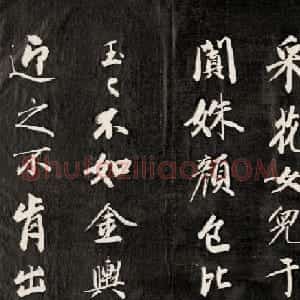 采花女兒于
闐姝顏色比
玉〻不如金輿
近之可肯出
shufaziliao.COM